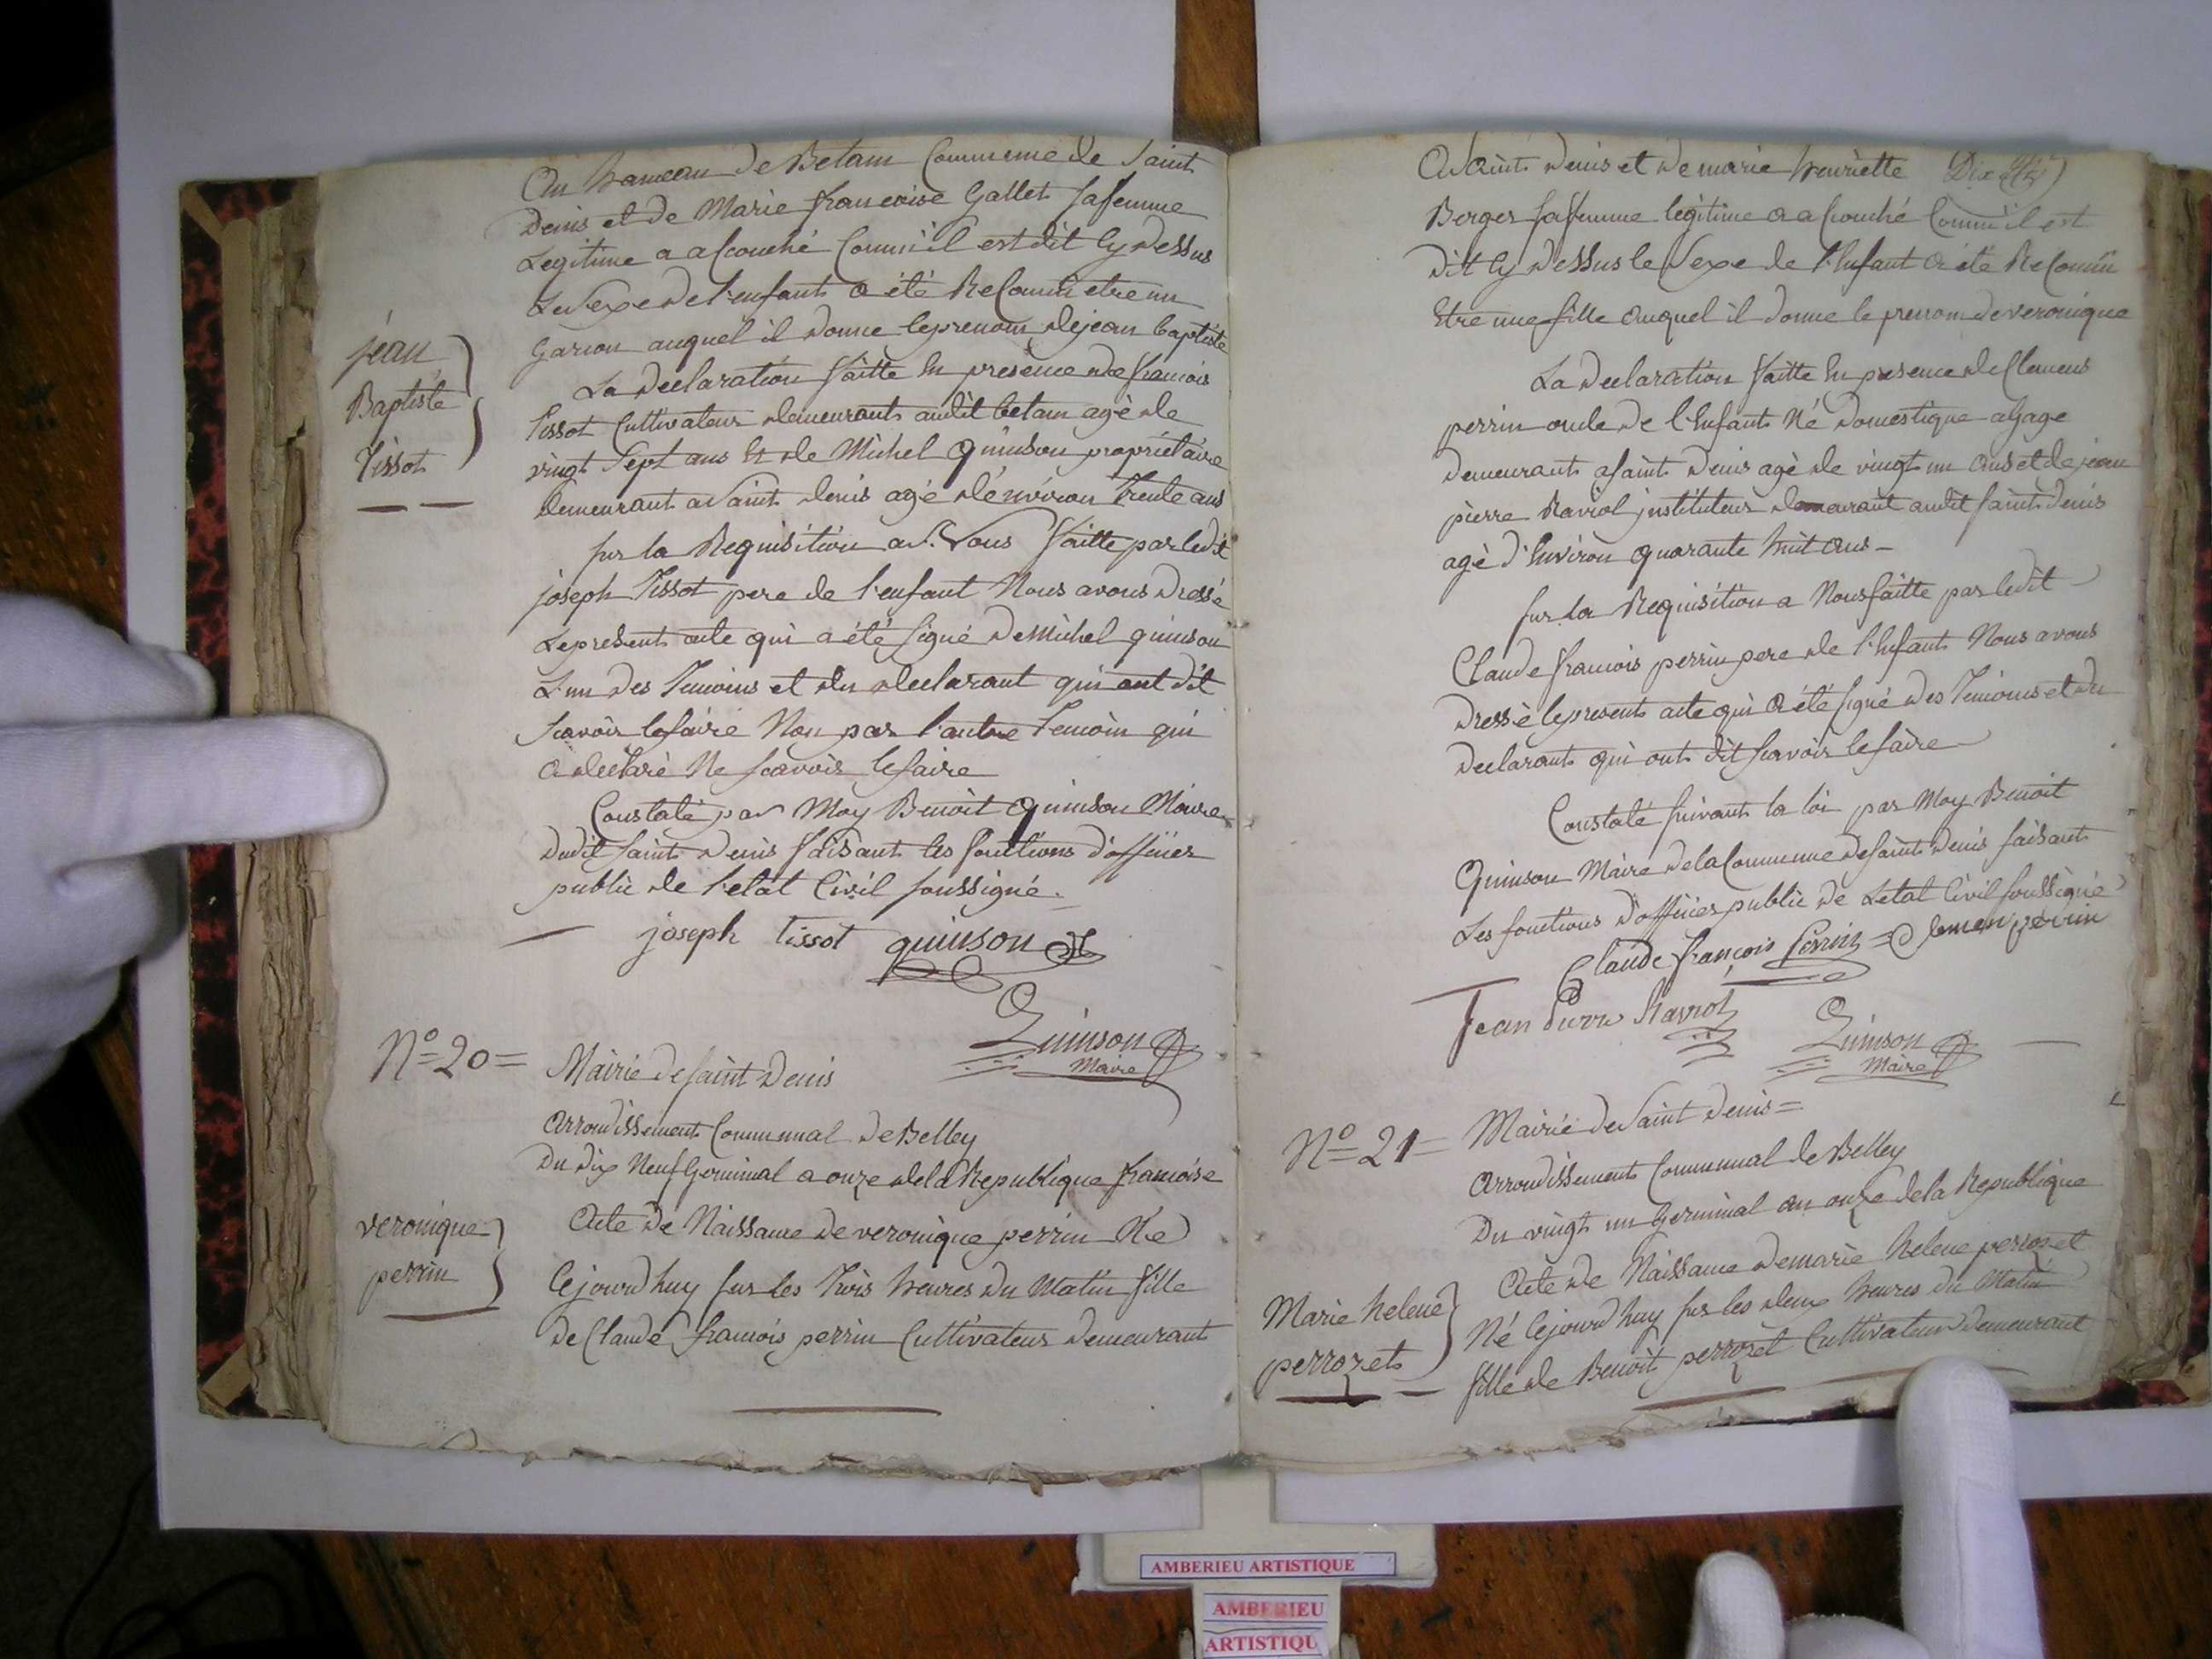 Au hameau de Betam Commune de Saint
Denis et de Marie francoise Gallet sa femme
Legitime a acouché Comm'il est dit Cy dessus
Le Sexe de l'enfant a été Reconnu etre un
Garcon auquel il donne le prenom de jean baptiste
jean
Baptiste
Tissot
La declaration faitte En presence de francois
Tissot Cultivateur demeurant audit betam agé de
vingt Sept ans Et de Michel Quinson propriétaire
demeurant a Saint denis agé d'environ Trente ans
sur la Requisition a Nous faitte par ledit
joseph Tissot pere de l'enfant Nous avons dressé
Le present acte qui a été signé de Michel quinson
L'un des Temoins et du declarant qui ont dit
scavoir le faire Non par l'autre Temoin qui
a declaré Ne scavoir le faire
Constaté par Moy Benoit Quinson Maire
dudit Saint Denis faisant les fonctions d'officier
public de l'etat Civil soussigné.
joseph tissot quinson
Quinson
Maire
N° 20 = Mairie de saint Denis
Arrondissement Communal de Belley
Du dix Neuf Germinal a onze de la Republique francoise
veronique
perrin
Acte de Naissance de veronique perrin Né
Cejourd huy sur les Trois heures du Matin fille
de Claude francois perrin Cultivateur demeurant
A Saint Denis et de marie henriette Dix
Berger sa femme legitime a acouché Comm'il est
dit Cy dessus le Sexe de l'Enfant a été Reconnu
Etre une fille auquel il donne le prenom de veronique
La declaration faitte En presence de Clemens
perrin oncle de l'Enfant Né domestique a Gage
demeurant a saint Denis agé de vingt un ans et de jean
pierre Ravrol jnstituteur demeurant audit saint Denis
agé d'Environ quarante huit ans -
sur la Requisition a Nous faitte par ledit
Claude francois perrin pere de l'Enfant Nous avons
dressé le present acte qui a été signé des Temoins et du
declarant qui ont dit scavoir le faire
Constaté suivant la loi par Moy Benoit
Quinson Maire de la Commune de saint Denis faisant
Les fonctions d'officier public de Letat Civil soussigné
Claude françois Perrin = Clemen perrin
Jean Pierre Ravrol Quinson
Maire
N° 21 = Mairie de Saint Denis =
Arrondissement Communal de Belley
Du vingt un Germinal an onze de la Republique
Marie helene
perrozet
Acte de Naissance de marie helene perrozet
Né Cejourd huy sur les deux heures du Matin
fille de Benoit perrozet Cultivateur demeurant
AMBERIEU ARTISTIQUE
AMBERIEU
ARTISTIQU